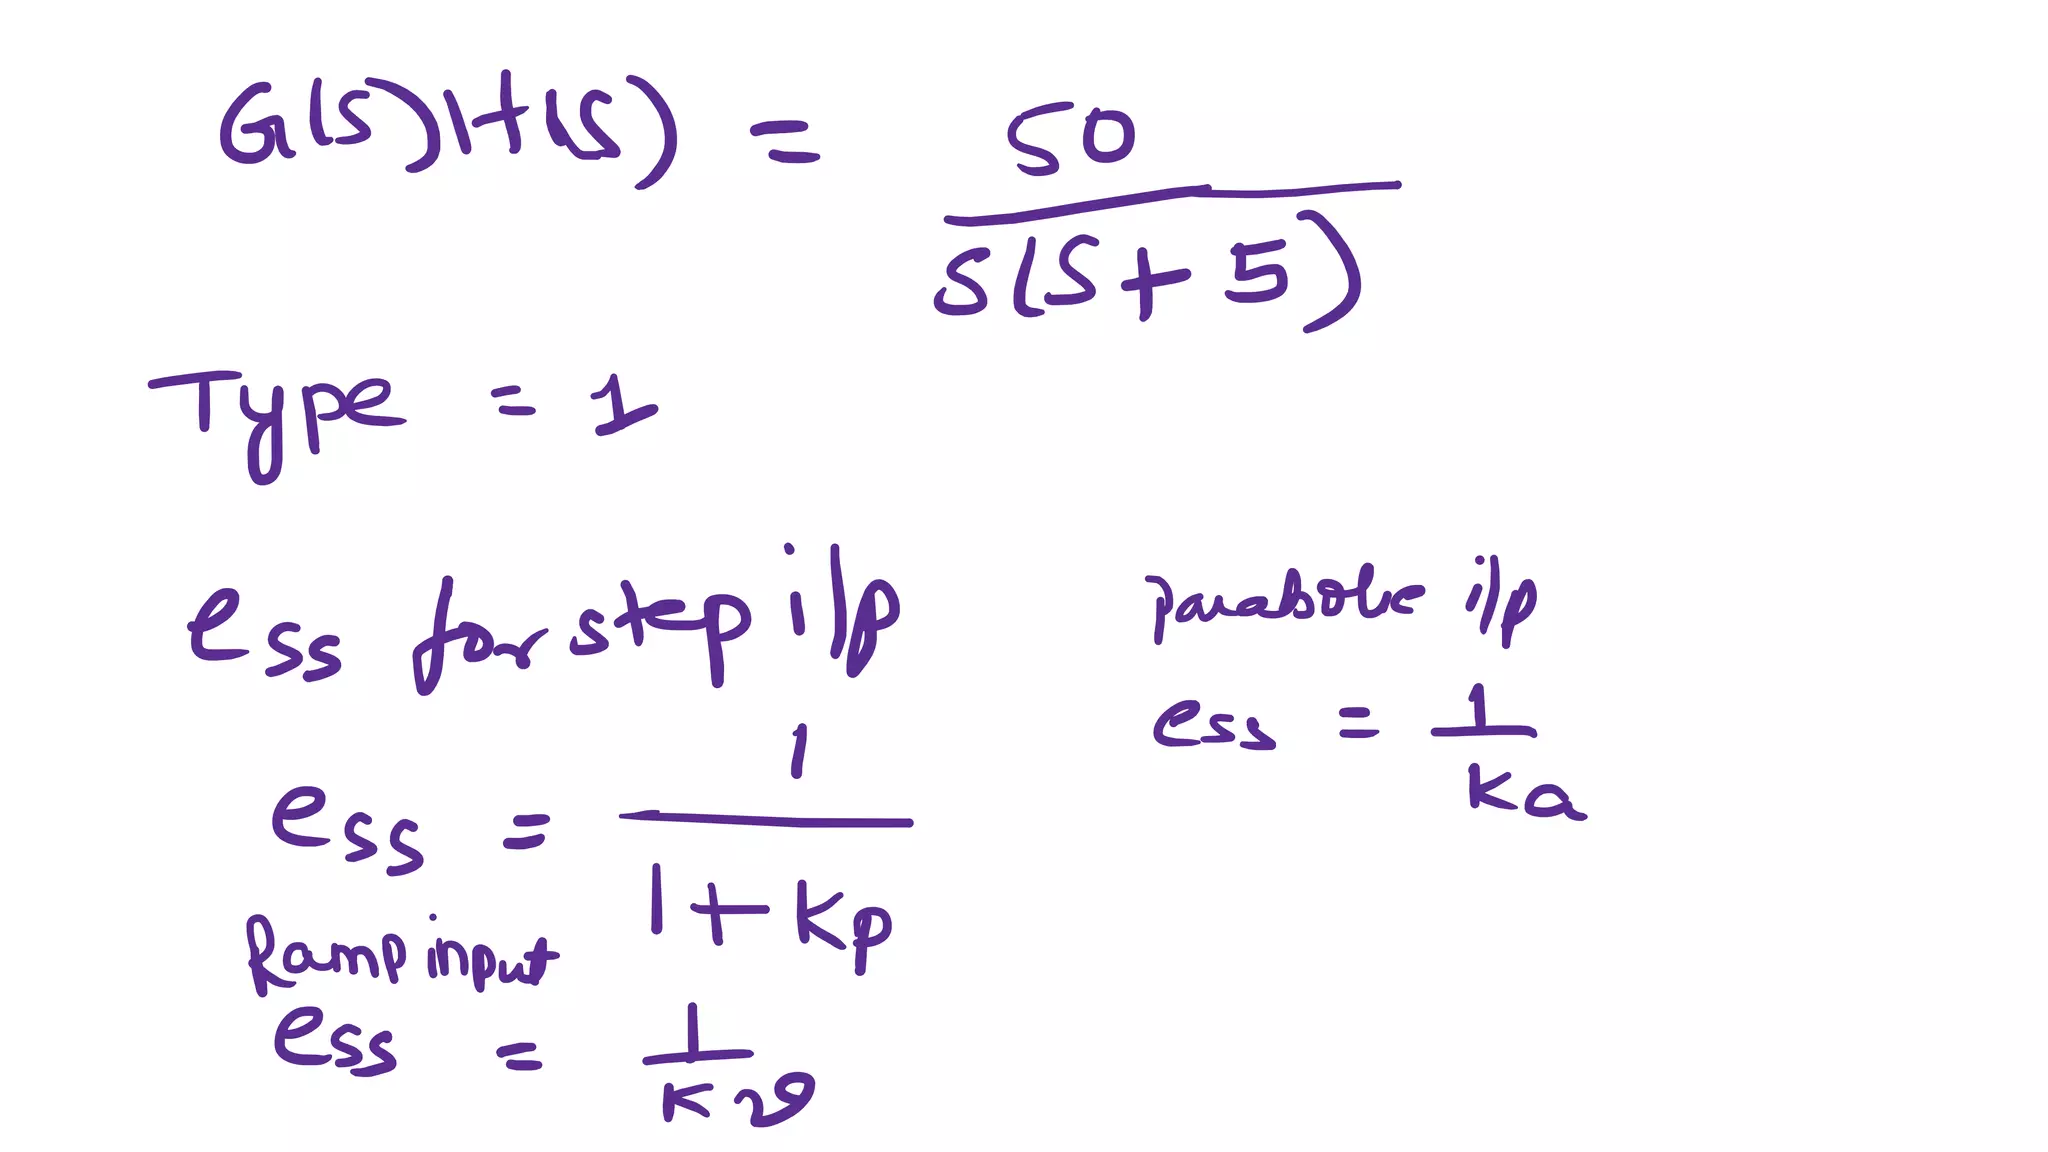 G(s)H(s) = 50
s(s+5)
Type = 1
ess for step i/p
ess = 1
1+Kp
Ramp input
ess = 1
Kv
parabolic i/p
ess = 1
Ka